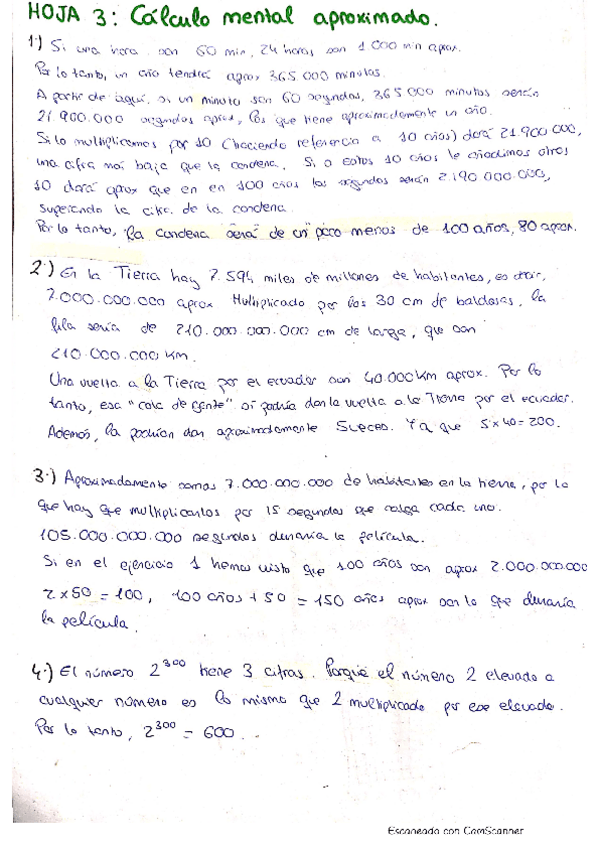 HOJA 3: Cálculo mental aproximado.
1·) Si una hora son 60 min, 24 horas son 1 000 min aprox.
Por lo tanto, un año tendrá aprox 365 000 minutos.
A partir de aquí, si un minuto son 60 segundos, 365 000 minutos serán
21.900.000 segundos aprox, los que tiene aproximadamente un año.
Si lo multiplicamos por 10 (haciendo referencia a 10 años) dará 21.900 000,
una cifra más baja que la condena. Si a estos 10 años le añadimos otros
10 dará aprox que en en 100 años los segundos serán 2.190 000.000,
superando la cifra de la condena.
Por lo tanto, la condena será de un poco menos de 100 años, 80 aprox.
2·) En la Tierra hay 7.594 miles de millones de habitantes, es decir,
7.000.000.000 aprox Multiplicado por los 30 cm de baldosas, la
fila sería de 210.000.000.000 cm de larga, que son
210.000.000 km.
Una vuelta a la Tierra por el ecuador son 40.000 km aprox. Por lo
tanto, esa "cola de gente" si podría dar la vuelta a la Tierra por el ecuador.
Además, la podrían dar aproximadamente 5 veces. Ya que 5 x 40 = 200.
3·) Aproximadamente somos 7.000.000.000 de habitantes en la tierra, por lo
que hay que multiplicarlos por 15 segundos que salga cada uno.
105.000.000.000 segundos duraría la película.
Si en el ejercicio 1 hemos visto que 100 años son aprox 2.000.000.000
2 x 50 = 100, 100 años + 50 = 150 años aprox son lo que duraría
la película.
4·) El número 2³⁰⁰ tiene 3 cifras. Porque el número 2 elevado a
cualquier número es lo mismo que 2 multiplicado por ese elevado.
Por lo tanto, 2³⁰⁰ = 600.
Escaneado con CamScanner